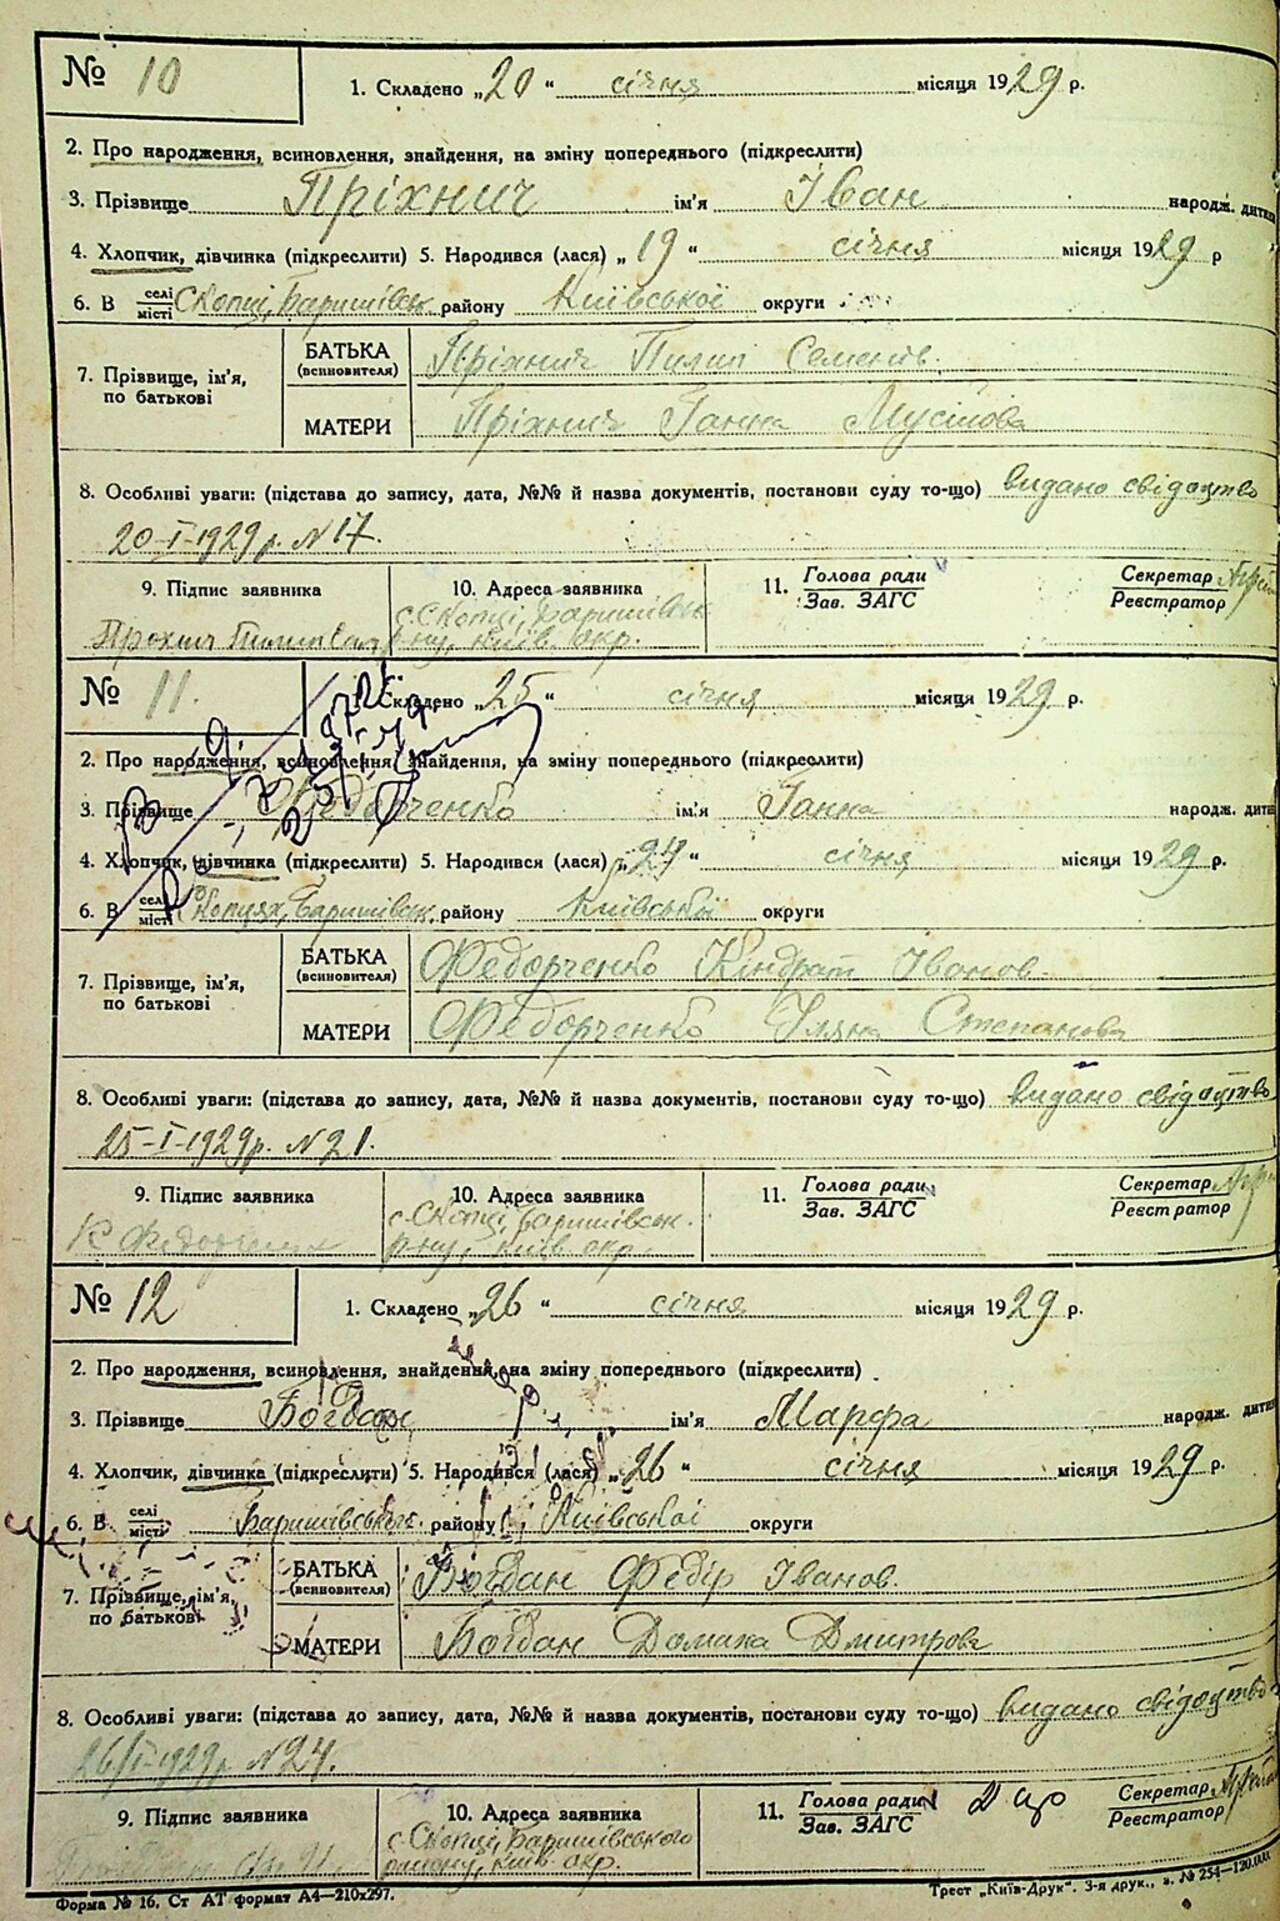 № 10
1. Складено „20“ січня місяця 1929 р.
2. Про народження, всиновлення, знайдення, на зміну попереднього (підкреслити)
3. Прізвище Пріхнич ім'я Іван народж. дитини
4. Хлопчик, дівчинка (підкреслити) 5. Народився (лася) „19“ січня місяця 1929 р
6. В селі місті Скопці, Баришівськ. району Київської округи
7. Прізвище, ім'я, по батькові
БАТЬКА (всиновителя) Пріхнич Пилип Семенів.
МАТЕРИ Пріхнич Ганна Мусійова
8. Особливі уваги: (підстава до запису, дата, №№ й назва документів, постанови суду то-що) видано свідоцтво
20-I-1929 р. N 17.
9. Підпис заявника
10. Адреса заявника
11. Голова ради Зав. ЗАГС
Секретар Реєстратор
с. Скопці, Баришівськ.
р-ну, Київ. окр.
№ 11.
1. Складено „25“ січня місяця 1929 р.
2. Про народження, всиновлення, знайдення, на зміну попереднього (підкреслити)
3. Прізвище Федорченко ім'я Ганна народж. дитини
4. Хлопчик, дівчинка (підкреслити) 5. Народився (лася) „24“ січня місяця 1929 р.
6. В селі місті Скопцях, Баришівськ. району Київської округи
7. Прізвище, ім'я, по батькові
БАТЬКА (всиновителя) Федорченко Кіндрат Іванов.
МАТЕРИ Федорченко Уляна Степанова
8. Особливі уваги: (підстава до запису, дата, №№ й назва документів, постанови суду то-що) видано свідоцтво
25-I-1929 р. N 21.
9. Підпис заявника
10. Адреса заявника
11. Голова ради Зав. ЗАГС
Секретар Реєстратор
с. Скопці, Баришівськ.
р-ну, Київ. окр.
№ 12
1. Складено „26“ січня місяця 1929 р.
2. Про народження, всиновлення, знайдення, на зміну попереднього (підкреслити)
3. Прізвище Богдан ім'я Марфа народж. дитини
4. Хлопчик, дівчинка (підкреслити) 5. Народився (лася) „26“ січня місяця 1929 р.
6. В селі місті Баришівського району Київської округи
7. Прізвище, ім'я, по батькові
БАТЬКА (всиновителя) Богдан Федір Іванов.
МАТЕРИ Богдан Домаха Дмитрова
8. Особливі уваги: (підстава до запису, дата, №№ й назва документів, постанови суду то-що) видано свідоцтво
26/I-1929 р. N 24.
9. Підпис заявника
10. Адреса заявника
11. Голова ради Зав. ЗАГС
Секретар Реєстратор
с. Скопці, Баришівського
району, Київ. окр.
Форма № 16. Ст АТ формат А4—210х297.
Трест „Київ-Друк“. 3-я друк., з. № 254—120.000